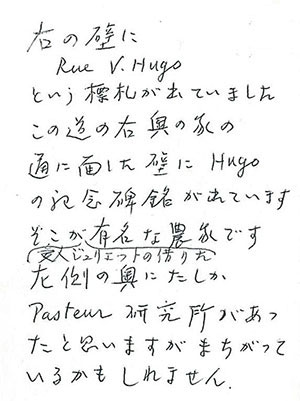 右の壁に
Rue V. Hugo
という標札が出ていました
この道の右奥の家の
通に面した壁に Hugo
の記念碑銘が出ています
そこが有名な農家です
愛人ジュリエットの借りた
左側の奥にたしか
Pasteur 研究所があっ
たと思いますがまちがって
いるかもしれません.